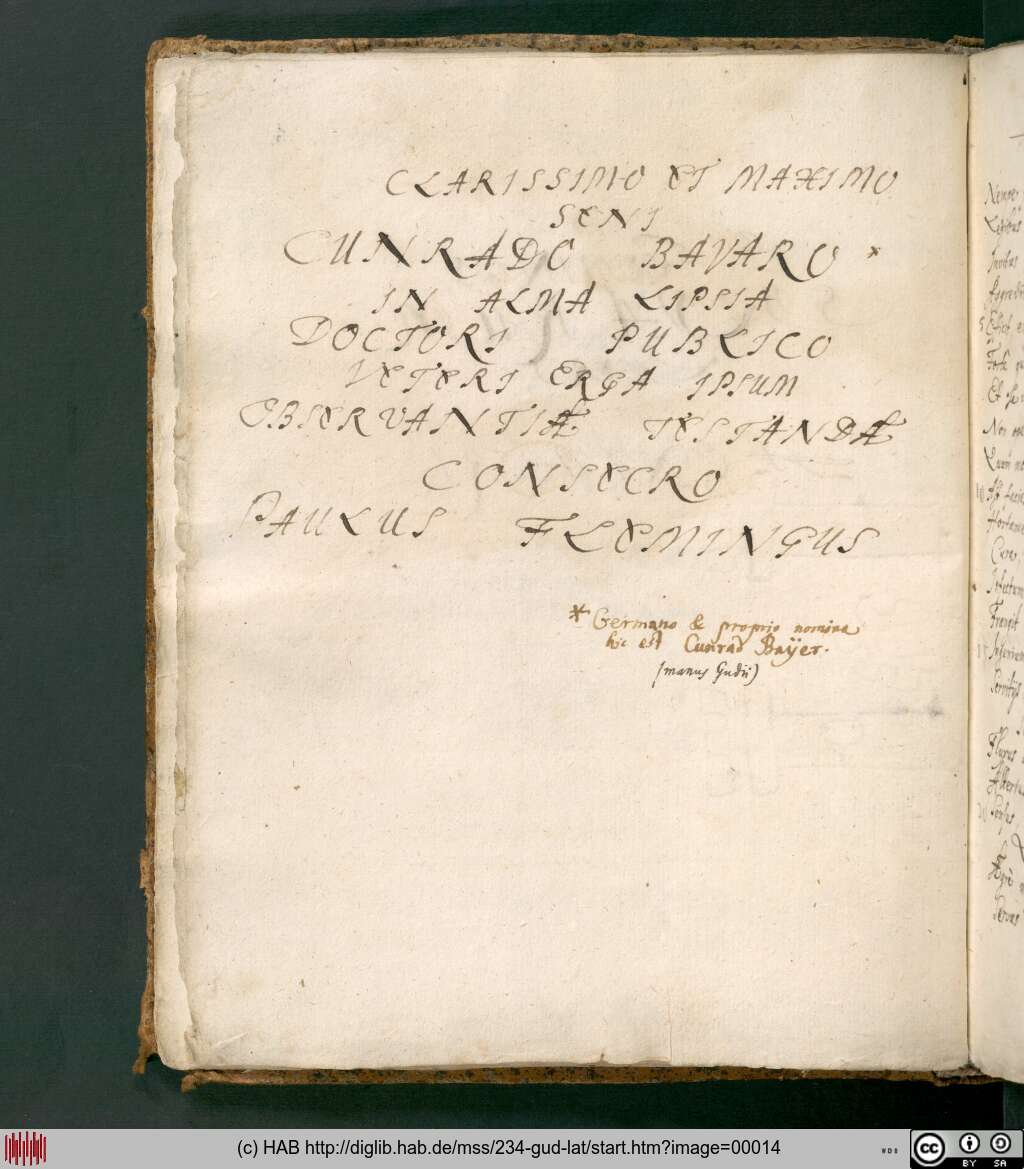 CLARISSIMO ET MAXIMO
SENI
CUNRADO BAVARO *
IN ALMA LIPSIA
DOCTORI PUBLICO
VETERI ERGA IPSUM
OBSERVANTIÆ TESTANDÆ
CONSECRO
PAULUS FLEMINGUS
* Germano & proprio nomine
hic est Cunrad Baÿer.
(manus Gudii)
(c) HAB http://diglib.hab.de/mss/234-gud-lat/start.htm?image=00014
WDB
cc BY SA